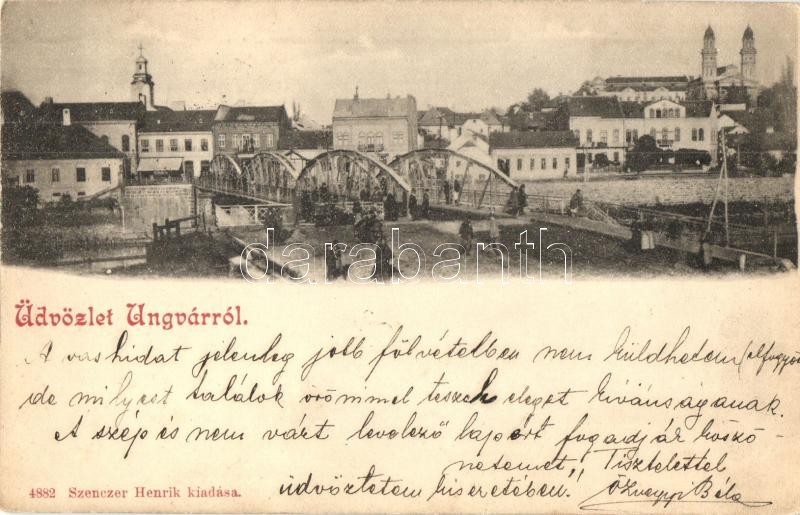 darabanth
Üdvözlet Ungvárról.
A vashidat jelenleg jobb fölvételben nem küldhetem (elfogyott)
de milyest találok örömmel teszek eleget kivánságának.
A szép és nem várt levelező lapért fogadja köszö-
netemet, Tisztelettel
üdvöztetem kiseretében! Béla
4882 Szenczer Henrik kiadása.